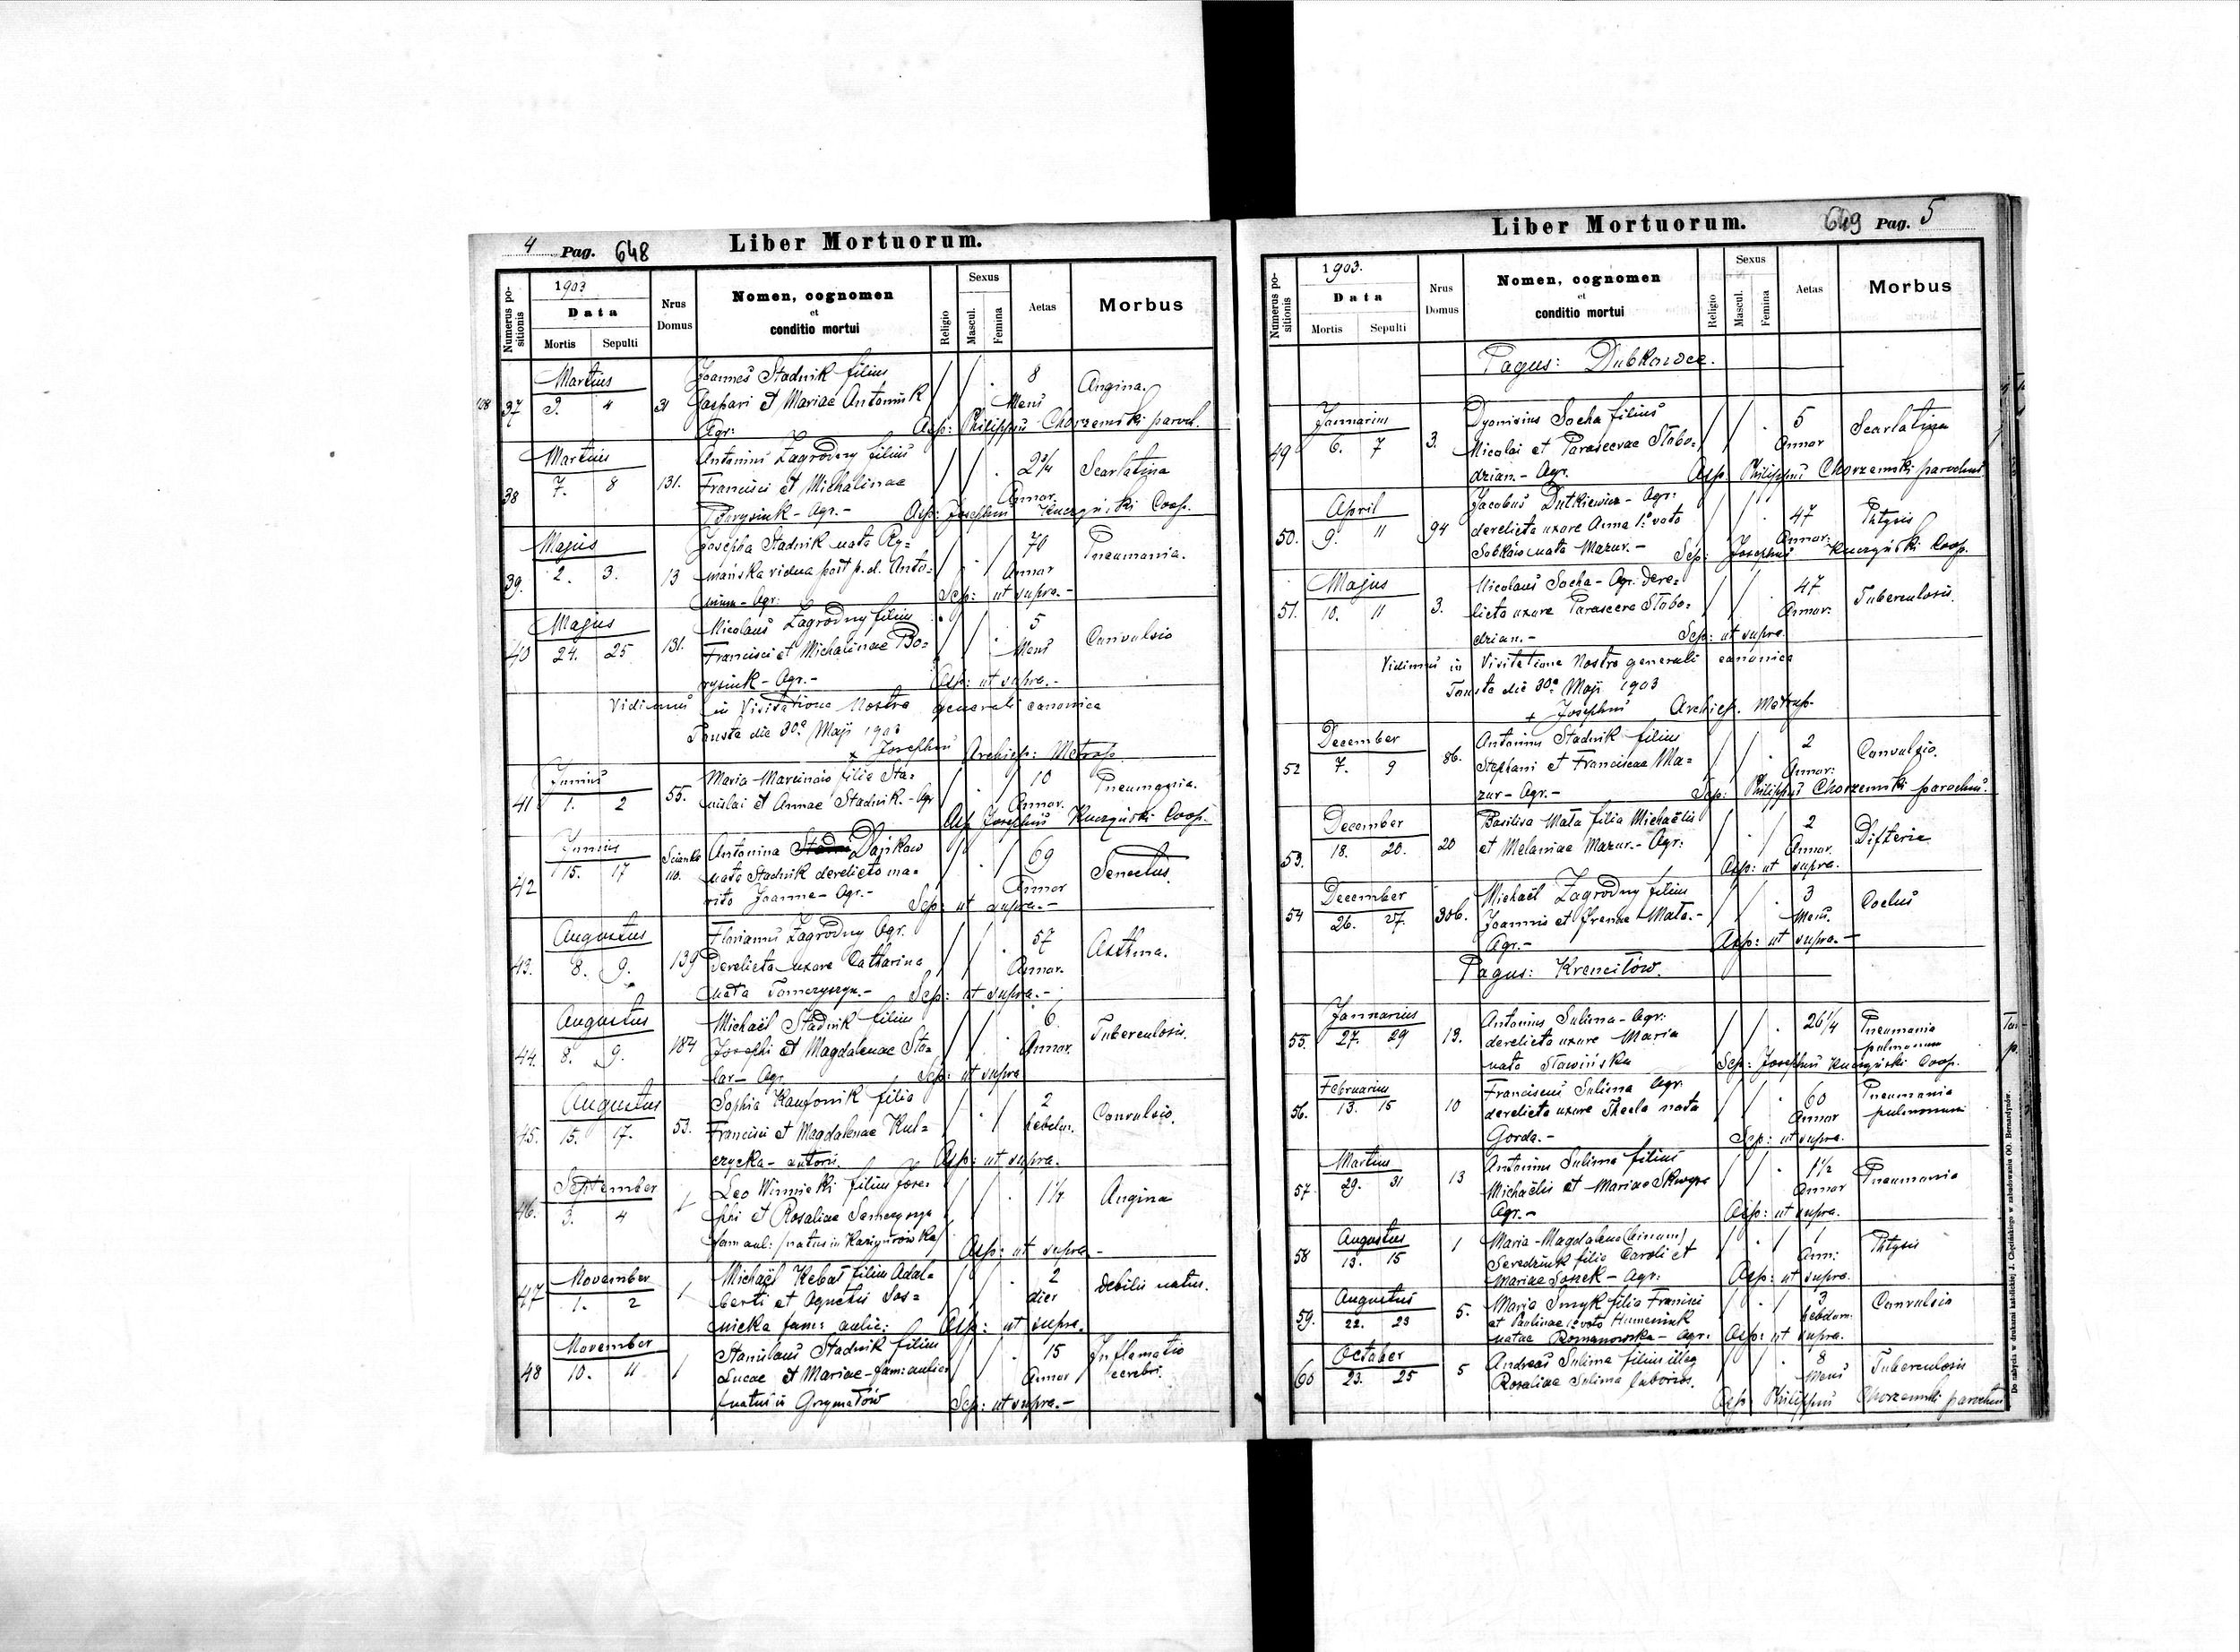 4 Pag. 648 Liber Mortuorum.
Numerus positionis
1903
Data
Mortis Sepulti
Nrus Domus
Nomen, cognomen
et
conditio mortui
Religio
Sexus
Mascul. Femina
Aetas
Morbus
Martius
37 3. 4 31
Joannes Stadnik filius
Gaspari et Mariae Antoniuk
Agr:
8
Mens
Angina.
Asp: Philippus Chorzemski paroch.
Martius
38 7. 8 131.
Antonius Zagrodny filius
Francisci et Michalinae
Borysiuk - Agr. -
2 3/4
Annor.
Scarlatina
Asp: Josephus Kuczyński Coop.
Majus
39. 2. 3. 13
Josepha Stadnik nata Ry=
mańska vidua post p. d. Anto=
nium - Agr:
70
Annor
Pneumonia.
Sep: ut supra. -
Majus
40 24. 25 131.
Nicolaus Zagrodny filius
Francisci et Michalinae Bo=
rysiuk - Agr. -
5
Mens
Convulsio
Asp: ut supra. -
Vidimus in Visitatione Nostra generali canonica
Tousta die 30a Maji 1903
+ Josephus Archiep: Metrop.
Junius
41 1. 2 55.
Maria Marcinów filia Sta=
nislai et Annae Stadnik. - Agr
10
Annor.
Pneumonia.
Asp Josephus Kuczyński Coop.
Junius
42 15. 17 Ścianka 110.
Antonina Dajikow
nata Stadnik derelicto ma=
rito Joanne - Agr. -
69
Annor
Senectus.
Sep: ut supra. -
Augustus
43. 8. 9. 139
Florianus Zagrodny Agr.
Derelicta uxore Catharina
nata Tomczyszyn. -
57
Annor.
Asthma.
Sep: ut supra. -
Augustus
44. 8. 9. 184
Michaël Stadnik filius
Josephi et Magdalenae Sto=
lar - Agr
6
Annor.
Tuberculosis.
Sep: ut supra
Augustus
45. 15. 17. 53.
Sophia Kanfonik filia
Francisci et Magdalenae Kul=
czycka -
2
hebdm.
Convulsio.
Asp: ut supra.
September
46. 3. 4 1
Leo Winnicki filius Jose=
phi et Rosaliae
fam aul: /natus in Kazigurówka/
1 1/2
Angina
Asp: ut supra -
November
47 1. 2 1
Michaël Kebas filius Adal=
berti et Agnetis Sos=
nicka fam: aulic:
2
dier
Debilis natus.
Asp: ut supra.
November
48 10. 11 1
Stanislaus Stadnik filius
Lucae et Mariae - fam: aulici
natus in Grzymałów
15
Annor
Inflamatio
cerebri.
Sep: ut supra. -
Liber Mortuorum. 649 Pag. 5
Numerus positionis
1903.
Data
Mortis Sepulti
Nrus Domus
Nomen, cognomen
et
conditio mortui
Religio
Sexus
Mascul. Femina
Aetas
Morbus
Pagus: Dubkowce.
Januarius
49 6. 7 3.
Dyonisius Socha filius
Nicolai et Parascevae Słobo=
dzian. - Agr.
5
Annor
Scarlatina
Asp. Philippus Chorzemski parochus
April
50. 9. 11 94
Jacobus Dutkiewicz - Agr:
derelicta uxore Anna 1o voto
Sobków nata Mazur. -
47
Annor:
Phtysis
Sep: Josephus Kuczyński Coop.
Majus
51. 10. 11 3.
Nicolaus Socha - Agr: Dere=
licta uxore Parasceva Słobo=
dzian. -
47
Annor:
Tuberculosis.
Sep: ut supra.
Vidimus in Visitatione Nostra generali canonica
Tousta die 30a Maji 1903
+ Josephus Archiep. Metrop.
December
52 7. 9 86.
Antonius Stadnik filius
Stephani et Franciscae Ma=
zur - Agr. -
2
Annor:
Convulsio.
Sep: Philippus Chorzemski parochus.
December
53. 18. 20. 20
Basilisa Mata filia Michaëlis
et Melaniae Mazur. - Agr:
2
Annor.
Difteria
Asp: ut supra.
December
54 26. 27. 306.
Michaël Zagrodny filius
Joannis et Irenae Mata. -
Agr. -
3
Mens.
Coclus
Asp: ut supra. -
Pagus: Krencitów.
Januarius
55. 27. 29 13.
Antonius Sulima - Agr:
derelicta uxore Maria
nata Stawińska
26 1/4
Pneumonia
pulmonum
Sep: Josephus Kuczyński Coop.
Februarius
56. 13. 15 10
Franciscus Sulima Agr.
derelicta uxore Thecla nata
Gorda. -
60
Annor
Pneumonia
pulmonum
Sep: ut supra.
Martius
57. 29. 31 13
Antonius Sulima filius
Michaëlis et Mariae
Agr. -
1 1/2
Annor
Pneumonia
Asp: ut supra.
Augustus
58 13. 15 1
Maria - Magdalena (binum)
Seredziuk filia Caroli et
Mariae Soszek - Agr:
1
Ann:
Phtysis
Asp: ut supra.
Augustus
59. 22. 23 5.
Maria Smyk filia Francisci
et Paulinae 1o voto Humeniuk
natae Romanowska - Agr:
3
hebdom.
Convulsio
Asp: ut supra.
October
60 23. 25 5
Andreas Sulima filius illeg
Rosaliae Sulima laborios.
8
Mens
Tuberculosis
Asp: Philippus Chorzemski parochus
Do nabycia w drukarni katolickiej J. Chęcińskiego w zabudowaniu OO. Bernardynów.